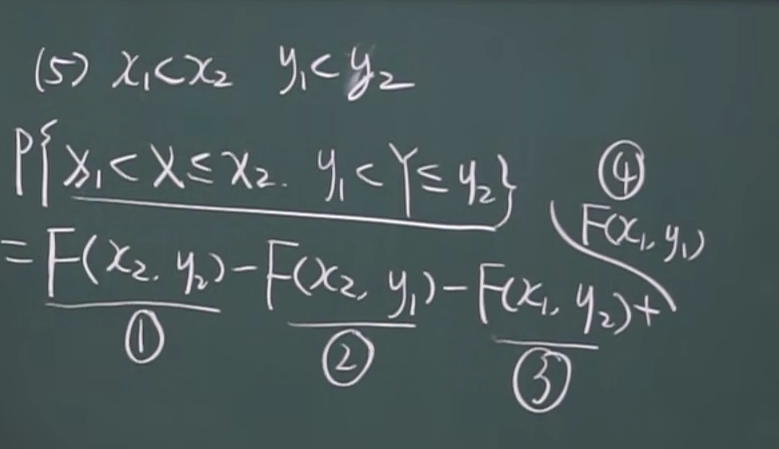 (5) x₁<x₂ y₁<y₂
P{x₁<X≤x₂. y₁<Y≤y₂}
④
F(x₁,y₁)
=F(x₂.y₂)-F(x₂,y₁)-F(x₁,y₂)+
① ② ③